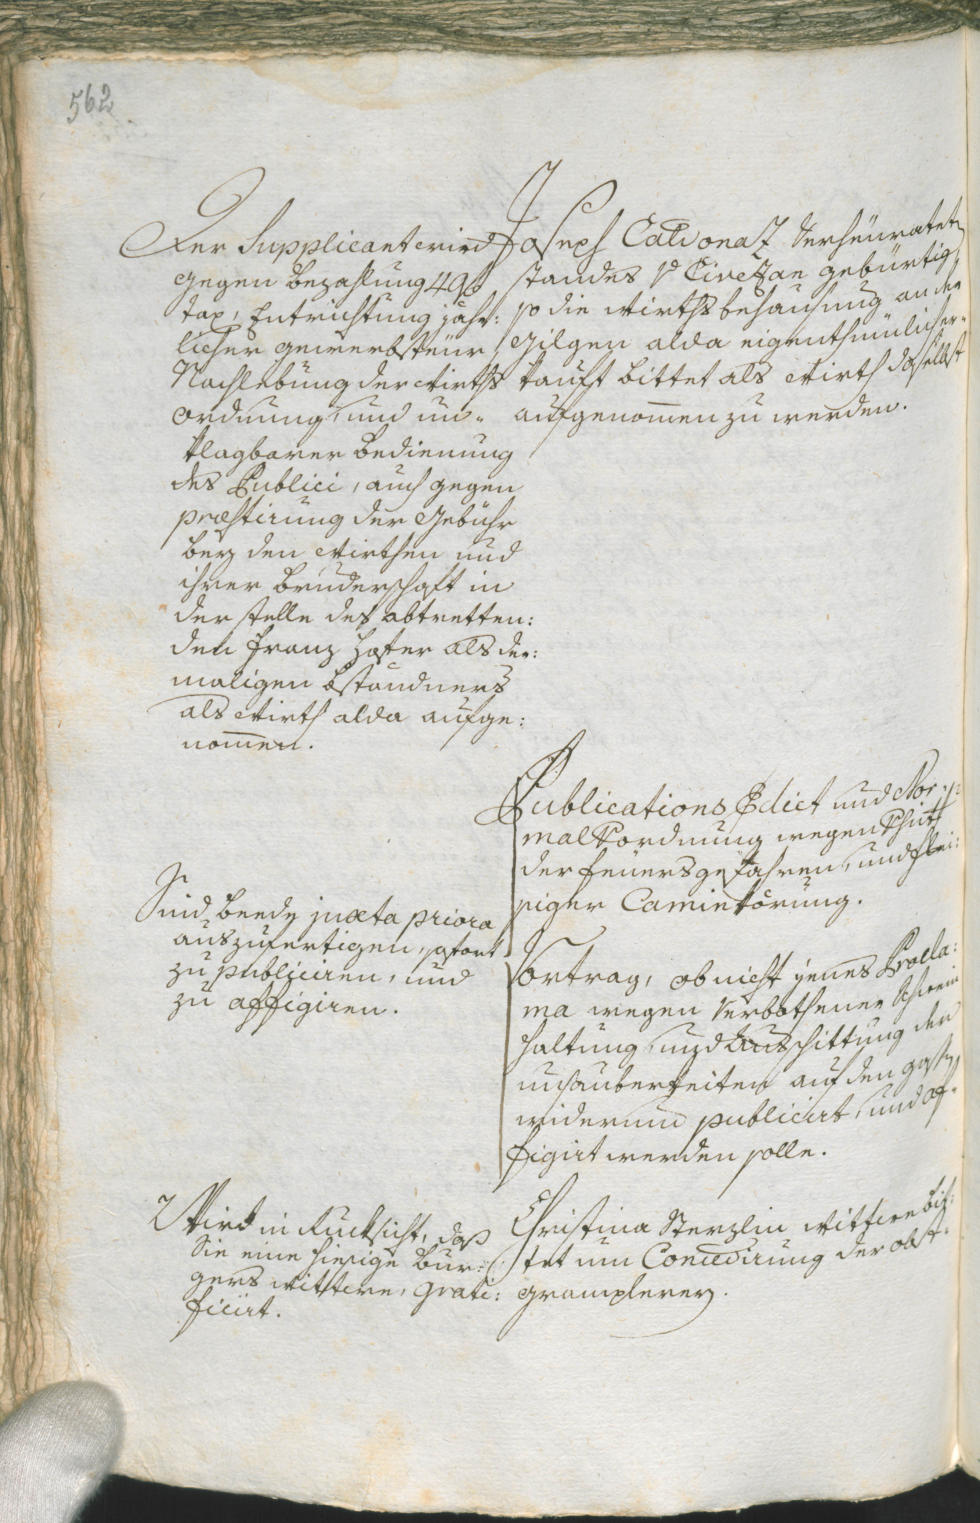 562
Joseph Cadonaz verheüratet
standes v Civezan gebürtig,
so die Wirthsbehausung an der
Gilgen alda eigenthümlich er-
kauft bittet als Wirth daselbst
aufgenommen zu werden.
Der Supplicant wird
gegen bezahlung 40
tax, Entrichtung jähr:
licher gewerbsteür,
Nachlebung der Wirths
ordnung, und un-
klagbarer bedienung
des Publici, auch gegen
præstirung der Gebühr
bey den Wirthen und
ihrer bruderschaft in
der stelle des abtretten:
den Franz Hofer als der:
maligen bständners
als Wirth alda aufge:
nommen.
Publications Edict und Nor-
mal Vordnung wegen
der feüersgefahren, und flei:
siger Caminkörung.
Sind beede juxta priora
auszufertigen, sofort
zu publiciren, und
zu affigiren.
Vortrag, ob nicht jenes Procla:
ma wegen verbothener Schwein
haltung, und Ausschittung der
unsauberheiten auf den gassen
widerumb publicirt, und af-
figirt werden solle.
Christina Sterzlin Wittwe bit:
tet um Concedirung der obst-
gramplerey.
Wird in Rucksicht, daß
Sie eine hiesige bur:
gers Wittwe, grati:
ficirt.